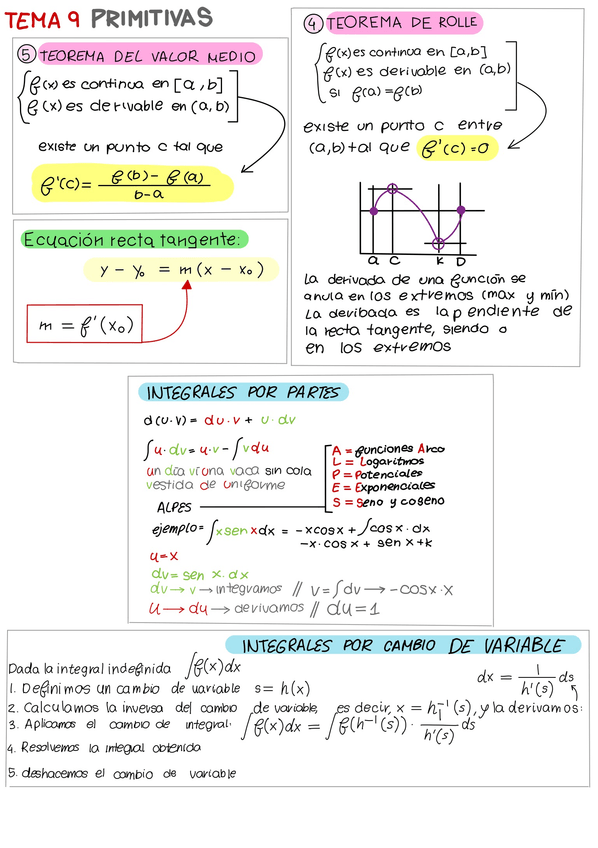 TEMA 9 PRIMITIVAS
⑤ TEOREMA DEL VALOR MEDIO
f(x) es continua en [a, b]
f(x) es derivable en (a, b)
existe un punto c tal que
f'(c) = f(b) - f(a) / b-a
Ecuación recta tangente:
y - y₀ = m(x - x₀)
m = f'(x₀)
④ TEOREMA DE ROLLE
f(x) es continua en [a,b]
f(x) es derivable en (a,b)
si f(a) = f(b)
existe un punto c entre
(a,b) tal que f'(c) = 0
a c k D
La derivada de una función se
anula en los extremos (max y mín)
La deribada es la pendiente de
la recta tangente, siendo 0
en los extremos
INTEGRALES POR PARTES
d(u·v) = du·v + u·dv
∫u·dv = u·v - ∫vdu
un día vi una vaca sin cola
vestida de uniforme
ALPES
A = funciones Arco
L = Logaritmos
P = Potenciales
E = Exponenciales
S = Seno y coseno
ejemplo = ∫x sen x dx = -x cos x + ∫cos x · dx
-x · cos x + sen x + k
u = x
dv = sen x · dx
dv → v → integramos // v = ∫dv → -cosx·x
u → du → derivamos // du = 1
INTEGRALES POR CAMBIO DE VARIABLE
Dada la integral indefinida ∫f(x)dx
dx = 1 / h'(s) ds
1. Definimos un cambio de variable s = h(x)
2. Calculamos la inversa del cambio de variable, es decir, x = h⁻¹(s), y la derivamos:
3. Aplicamos el cambio de integral. ∫f(x)dx = ∫f(h⁻¹(s)) · 1 / h'(s) ds
4. Resolvemos la integral obtenida
5. deshacemos el cambio de variable